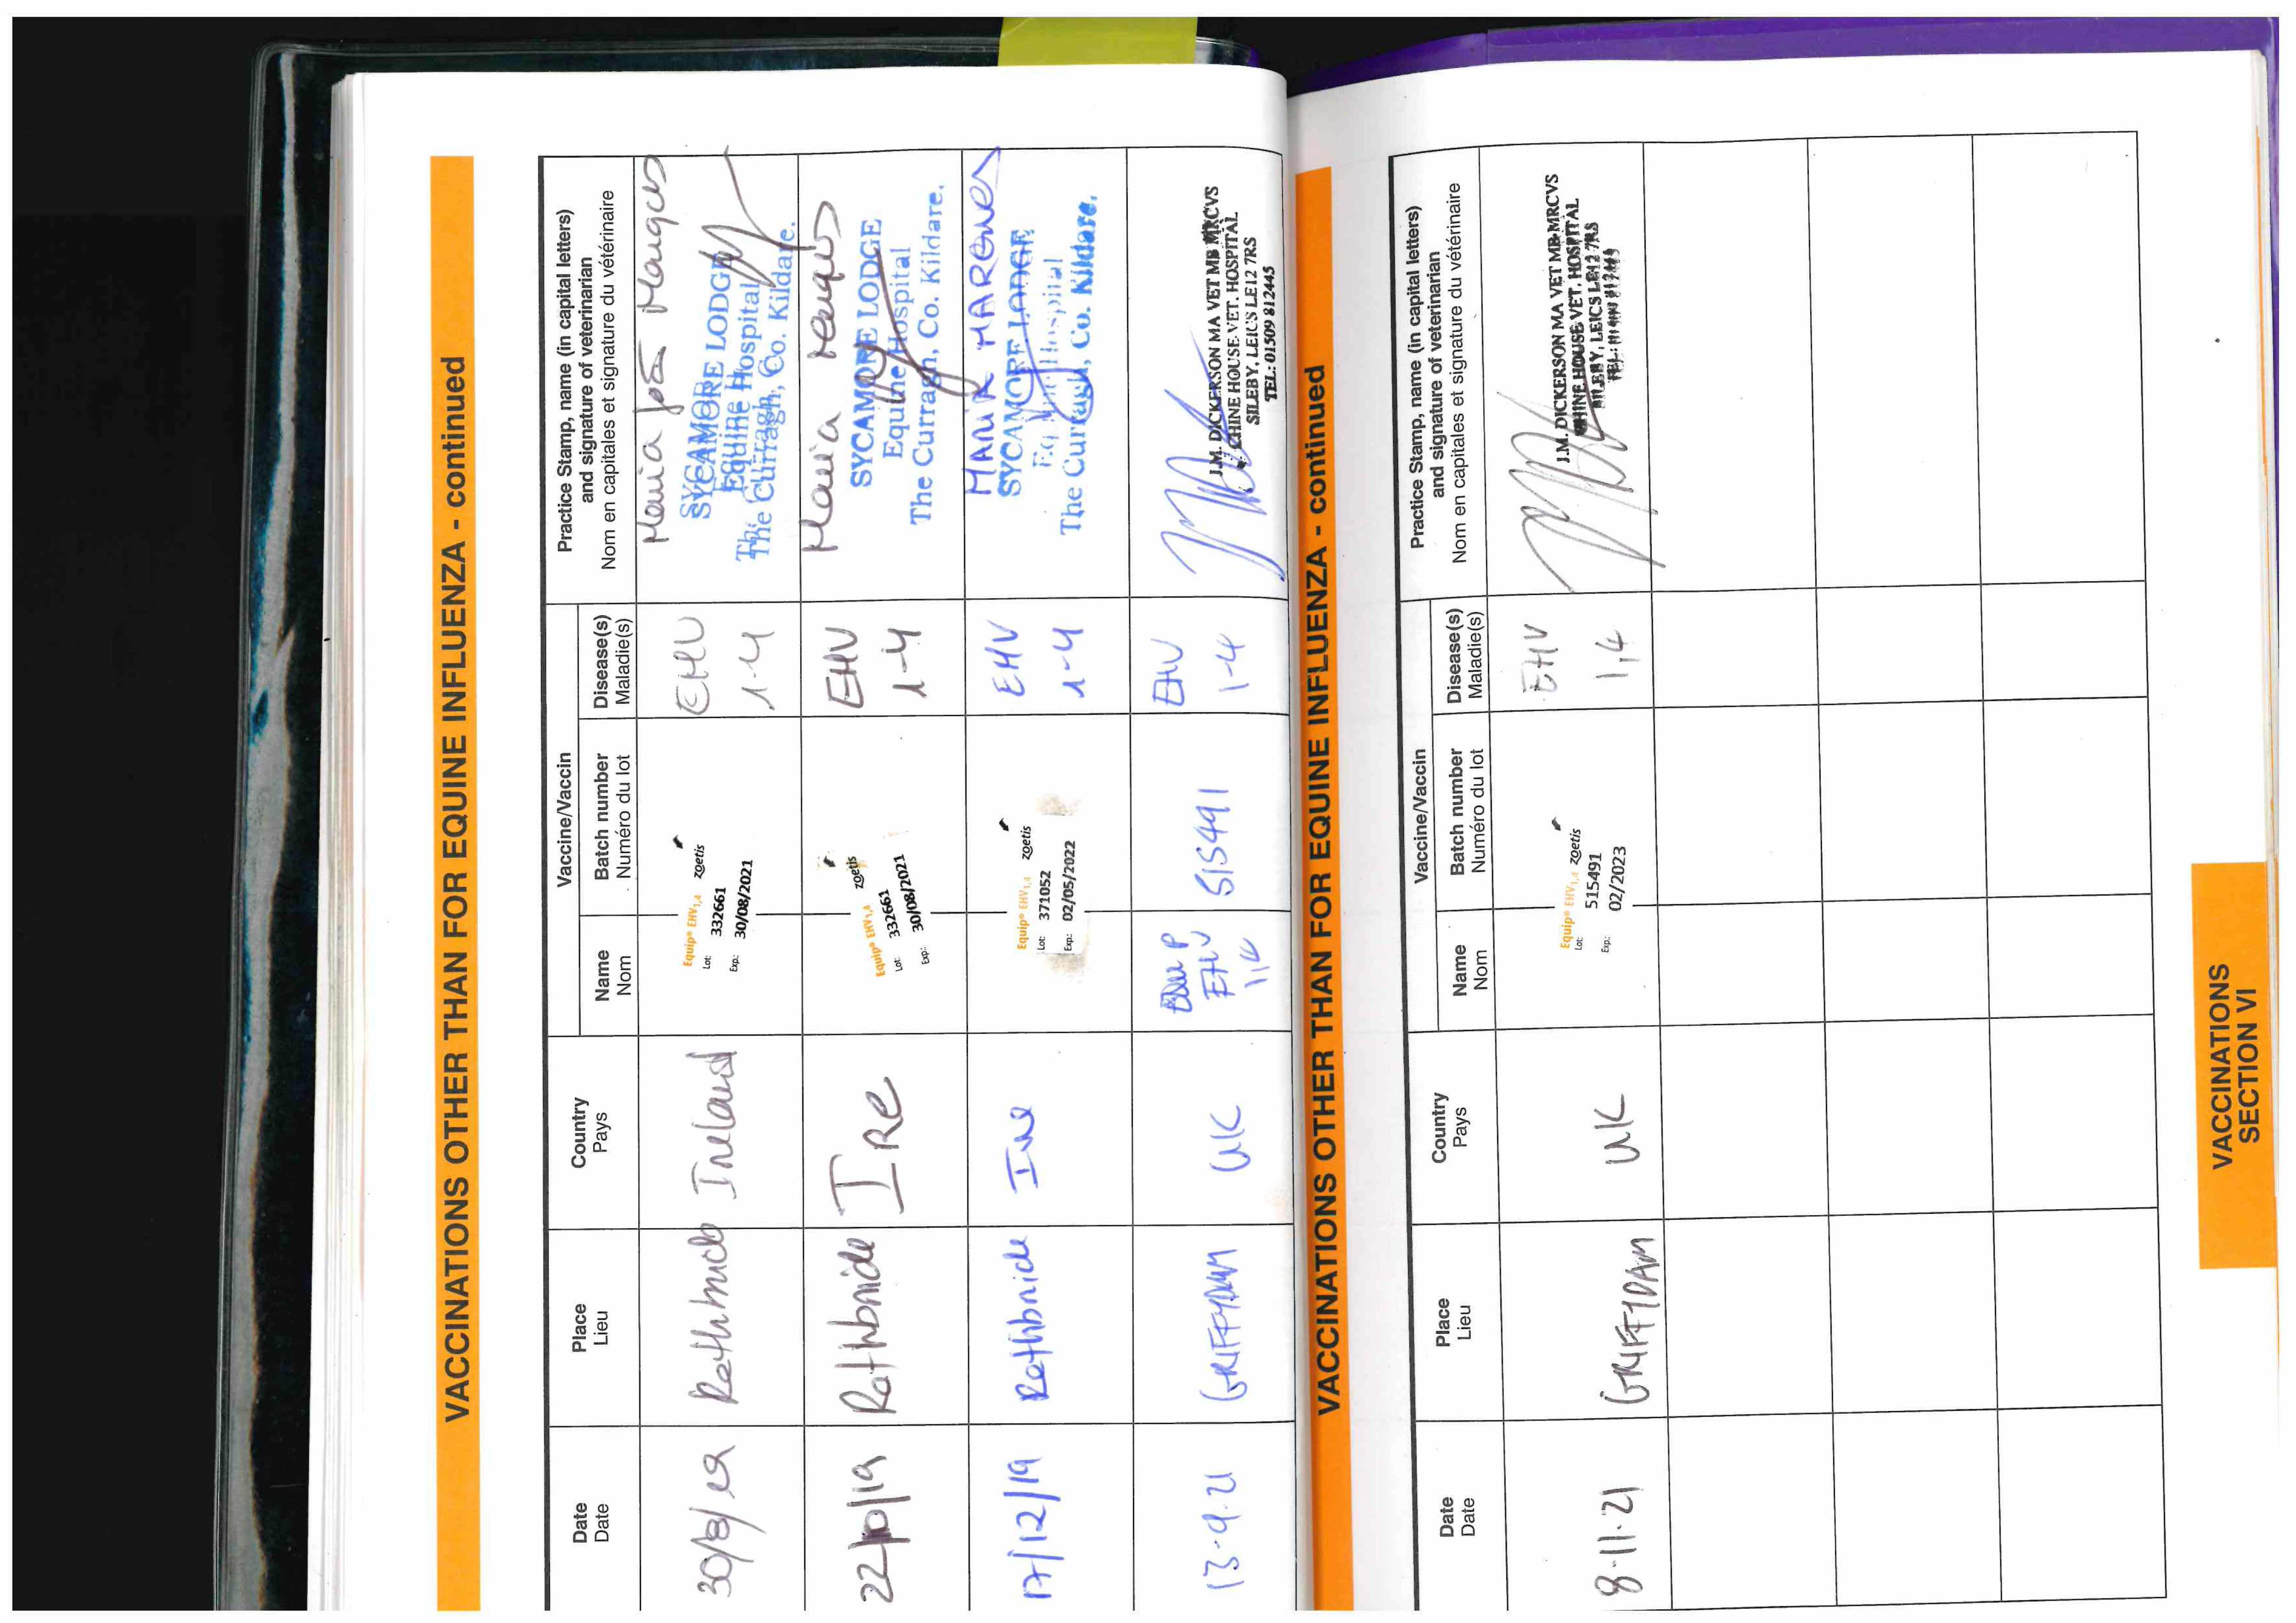 VACCINATIONS OTHER THAN FOR EQUINE INFLUENZA - continued
Date
Date
Place
Lieu
Country
Pays
Vaccine/Vaccin
Name
Nom
Batch number
Numéro du lot
Disease(s)
Maladie(s)
Practice Stamp, name (in capital letters)
and signature of veterinarian
Nom en capitales et signature du vétérinaire
30/8/19
Ireland
Equip® EHV1,4 zoetis
Lot: 332661
Exp.: 30/08/2021
EHV
1-4
Maria João Marques
SYCAMORE LODGE
Equine Hospital
The Curragh, Co. Kildare.
22/10/19
Rathbride
IRe
Equip® EHV1,4 zoetis
Lot: 332661
Exp.: 30/08/2021
EHV
1-4
Maria Marques
SYCAMORE LODGE
Equine Hospital
The Curragh, Co. Kildare.
17/12/19
Rathbride
Ire
Equip® EHV1,4 zoetis
Lot: 371052
Exp.: 02/05/2022
EHV
1-4
SYCAMORE LODGE
Equine Hospital
The Curragh, Co. Kildare.
13-9-21
GRIFFYDAM
UK
EHV
1,4
515491
EHV
1-4
J.M. DICKERSON MA VET MB MRCVS
CHINE HOUSE VET. HOSPITAL
SILEBY, LEICS LE12 7RS
TEL: 01509 812445
VACCINATIONS OTHER THAN FOR EQUINE INFLUENZA - continued
Date
Date
Place
Lieu
Country
Pays
Vaccine/Vaccin
Name
Nom
Batch number
Numéro du lot
Disease(s)
Maladie(s)
Practice Stamp, name (in capital letters)
and signature of veterinarian
Nom en capitales et signature du vétérinaire
8-11-21
GRIFFYDAM
UK
Equip® EHV1,4 zoetis
Lot: 515491
Exp.: 02/2023
EHV
1,4
J.M. DICKERSON MA VET MB MRCVS
CHINE HOUSE VET. HOSPITAL
SILEBY, LEICS LE12 7RS
VACCINATIONS
SECTION VI